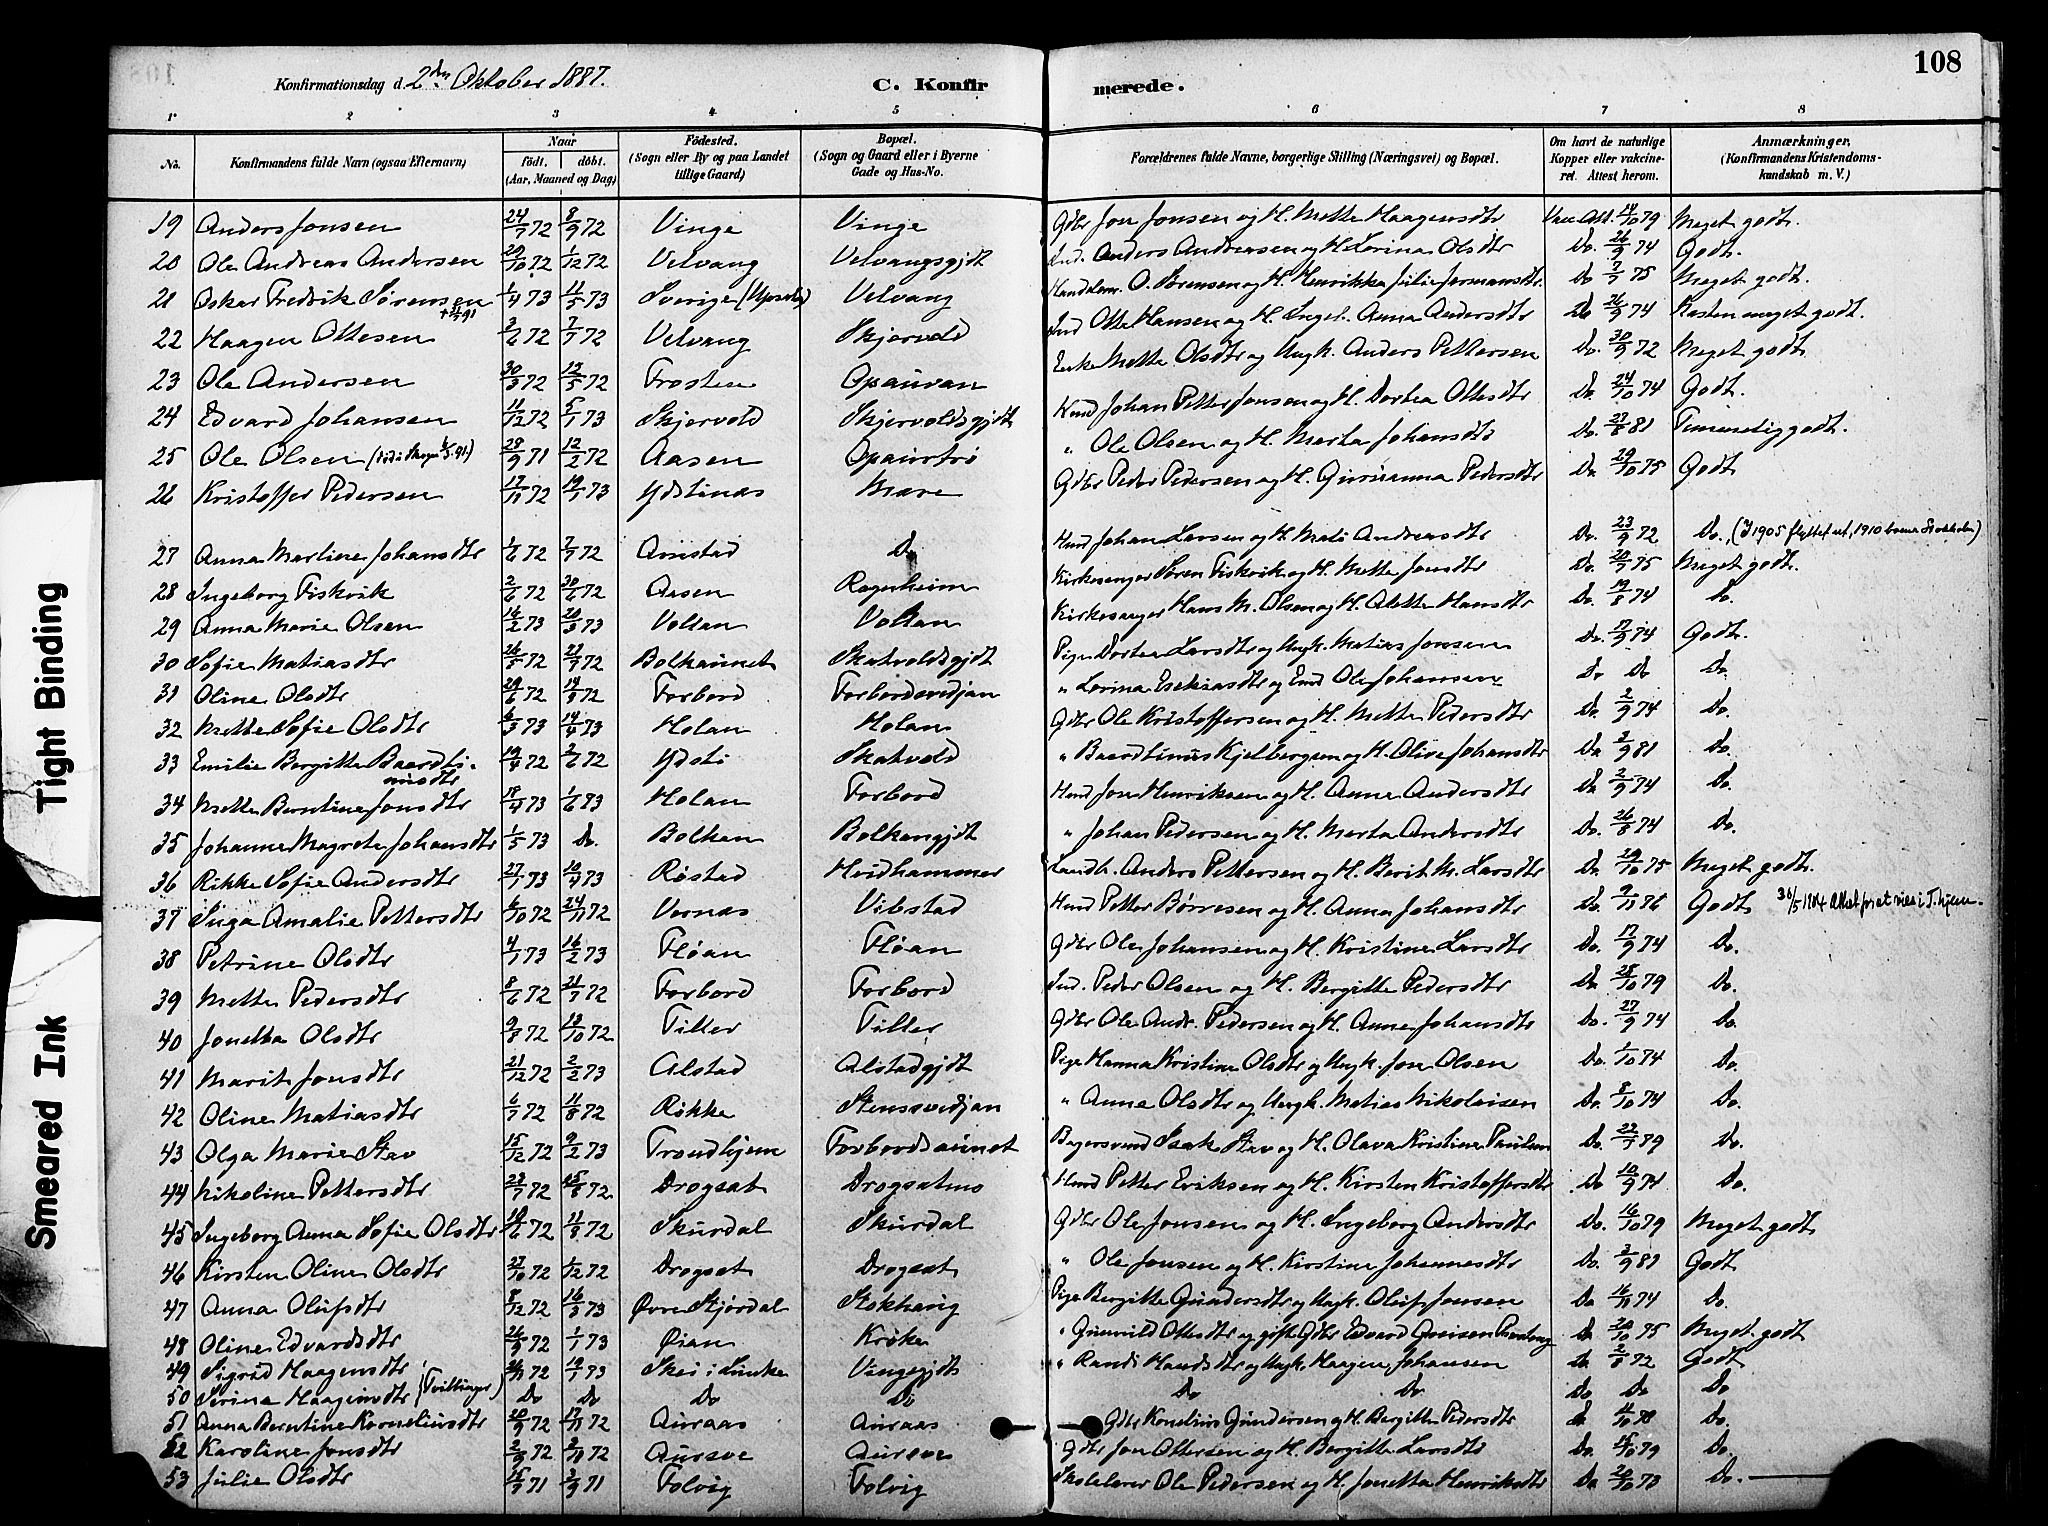 108
Konfirmationsdag d. 2den Oktober 1887.
C. Konfirmerede.
1 2 3 4 5 6 7 8
No. Konfirmandens fulde Navn (ogsaa Efternavn) Naar født, døbt. (Aar, Maaned og Dag) Fødested. (Sogn eller By og paa Landet tillige Gaard) Bopæl. (Sogn og Gaard eller i Byerne Gade og Hus-No. Forældrenes fulde Navne, borgerlige Stilling (Næringsvei) og Bopæl. Om havt de naturlige Kopper eller vakcineret. Attest herom. Anmærkninger, (Konfirmandens Kristendomskundskab m. V.)
19 Anders Jonsen 24/7 72 8/9 72 Vinge Vinge Gdbr Jon Jonsen og H. Mette Haagensdtr Vac. Att. 14/10 79 Meget godt.
20 Ole Andreas Andersen 20/10 72 1/12 72 Velvang Velvangsgjdt Ind. Anders Andreasen og H. Lorina Olsdtr Do. 26/9 74 Godt.
21 Oskar Fredrik Sørensen 1/4 73 11/5 73 Sverige (Upsala) Velvang Handelsm. O. Sørensen og H. Henrikka Julie Jormansdtr. Do 7/7 75 Meget godt.
22 Haagen Ottesen 2/6 72 7/7 72 Velvang Skjervold Ind Otto Hansen og H. Ingeb. Anna Andersdtr Do 26/9 74 Næsten meget godt.
23 Ole Andersen 30/3 72 12/5 72 Frosten Opauran Enke Mette Olsdtr og Ungk. Anders Pettersen Do. 30/9 72 Meget godt.
24 Edvard Johansen 11/12 72 5/1 73 Skjervold Skjervoldsgjdt Husmd Johan Petter Jonsen og H. Dortea Ottesdtr Do. 24/10 74 Godt.
25 Ole Olsen 28/9 71 12/2 72 Aasen Opaurtrø " Ole Olsen og H. Marta Johansdtr Do. 27/8 81 Temmelig godt.
26 Kristoffer Pedersen 17/11 72 19/1 73 Ydstinæs Mære Gdbr Peder Pedersen og H. Gurianna Pedersdtr Do. 29/10 75 Godt
27 Anna Martine Johansdtr 1/6 72 7/7 72 Amstad Do Husmd Johan Larsen og H. Mali Andreasdtr Do. 23/9 72 Do. (I 1905 flyttet ut, 1910 bornn Stokholm)
28 Ingeborg Fiskvik 2/6 72 30/6 72 Aasen Ragnheim Kirkesanger Søren Fiskvik og H. Mette Jonsdtr Do. 20/7 75 Meget godt.
29 Anna Marie Olsen 16/2 73 20/3 73 Vollan Vollan Kirkesanger Hans M. Olsen og H. Alette Hansdtr Do. 19/8 74 Do.
30 Sofie Matiasdtr 26/5 72 22/9 72 Bolkaunet Skatvoldsgjdt Pige Dortea Larsdtr og Ungk. Matias Jonsen Do. 17/9 74 Godt.
31 Oline Olsdtr 29/6 72 14/9 72 Forbord Forbordsvedjan " Lorina Esekiasdtr og Emd Ole Johansen Do Do Do.
32 Mette Sofie Olsdtr 6/3 73 14/4 73 Holan Holan Gdbr Ole Kristoffersen og H. Mette Pedersdtr Do. 2/9 74 Do.
33 Emilie Bergitte Baardtinusdtr 19/4 72 2/6 72 Ydsti Skatvold " Baardtinus Kjelbergsen og H. Olive Johansdtr Do 3/9 81 Do.
34 Mette Berntine Jonsdtr 18/4 73 1/6 73 Holan Forbord Husmd Jon Henriksen og H. Anne Andersdtr Do 2/9 74 Do.
35 Johanne Magrete Johansdtr 1/5 73 Do. Bolkan Bolkangjdt " Johan Pedersen og H. Marta Andersdtr Do. 26/8 74 Do.
36 Rikke Sofie Andersdtr 27/1 73 10/4 73 Røstad Hvidhammer Landh. Anders Pettersen og H. Berit M. Larsdtr Do. 29/10 75 Meget godt.
37 Inga Amalie Pettersdtr 6/10 72 24/11 72 Vornæs Vibstad Husmd Petter Børresen og H. Anna Johansdtr Do. 9/11 76 Godt 30/5 1904 Attest for at vies i T.hjem.
38 Petrine Olsdtr 4/1 73 16/2 73 Fløan Fløan Gdbr Ole Johansen og H. Kristine Larsdtr Do. 17/9 74 Do.
39 Mette Pedersdtr 8/6 72 21/7 72 Forbord Forbord Ind. Peder Olsen og H. Bergitte Pedersdtr Do. 28/10 79 Do.
40 Jonetta Olsdtr 9/8 72 13/10 72. Tiller Tiller Gdbr Ole Andr. Pedersen og H. Anne Johansdtr Do. 27/9 74 Do.
41 Marit Jonsdtr 21/12 72 2/2 73 Alstad Alstadgjdt Pige Hanna Kristine Olsdtr og Ungk. Jon Olsen Do. 1/10 74 Do.
42 Oline Matiasdtr 6/7 72 11/8 72 Røkke Stensvedjan " Anne Olsdtr og Ungk. Matias Nikolaisen Do. 8/10 74 Do.
43 Olga Marie Stav 15/12 72 9/2 73 Trondhjem Forbordsaunet Bagersvend Isak Stav og H. Olava Kristine Paulsen Do. 22/7 89 Do.
44 Nikoline Pettersdtr 23/7 72 25/8 72. Drogsat Drogsatmo Husmd Petter Eriksen og H. Kirsten Kristoffersdtr Do. 10/9 74 Do.
45 Ingeborg Anna Sofie Olsdtr 18/6 72 11/8 72 Skurdal Skurdal Gdbr Ole Jonsen og H. Ingeborg Andersdtr Do. 16/10 79 Meget godt
46 Kirsten Oline Olsdtr 27/10 72 1/12 72 Drogsat Drogsat " Ole Jonsen og H. Kirstine Johannesdtr Do. 3/9 81 Godt
47 Anna Olufsdtr 8/12 72 16/3 73 Øvre Stjørdal Stokhaug Pige Bergitte Gundersdtr og Ungk. Oluf Jonsen Do 16/11 74 Do.
48 Oline Edvardsdtr 26/9 72 1/1 73 Øian Krøke " Gunvild Ottesdtr og gift Gdbr Edvard Do 20/10 75 Meget godt
49 Sigrid Haagensdtr 72 19/1 73 Skei i Vingegjdt " Randi Hansdtr og Ungk. Haagen Johansen Do. 2/8 72 Godt
50 Serina Haagensdtr (Tvillinger) Do Do Do Do Do Do Do Do Do
51 Anna Berntine Korneliusdtr 20/9 72 17/11 72 Auraas Auraas Gdbr Kornelius Gundersen og H. Bergitte Pedersdtr Do 11/10 78 Do.
52 Karoline Jonsdtr 2/9 72 3/11 72 Aursve Aursve Gdbr Jon Ottersen og H. Bergitte Larsdtr Do. 15/10 79 Do.
53 Julie Olsdtr 15/7 71 3/9 71 Folvig Folvig Skolelærer Ole Pedersen og H. Jonetta Henriksdtr Do. 20/10 73 Do.
Tight Binding
Smeared Ink